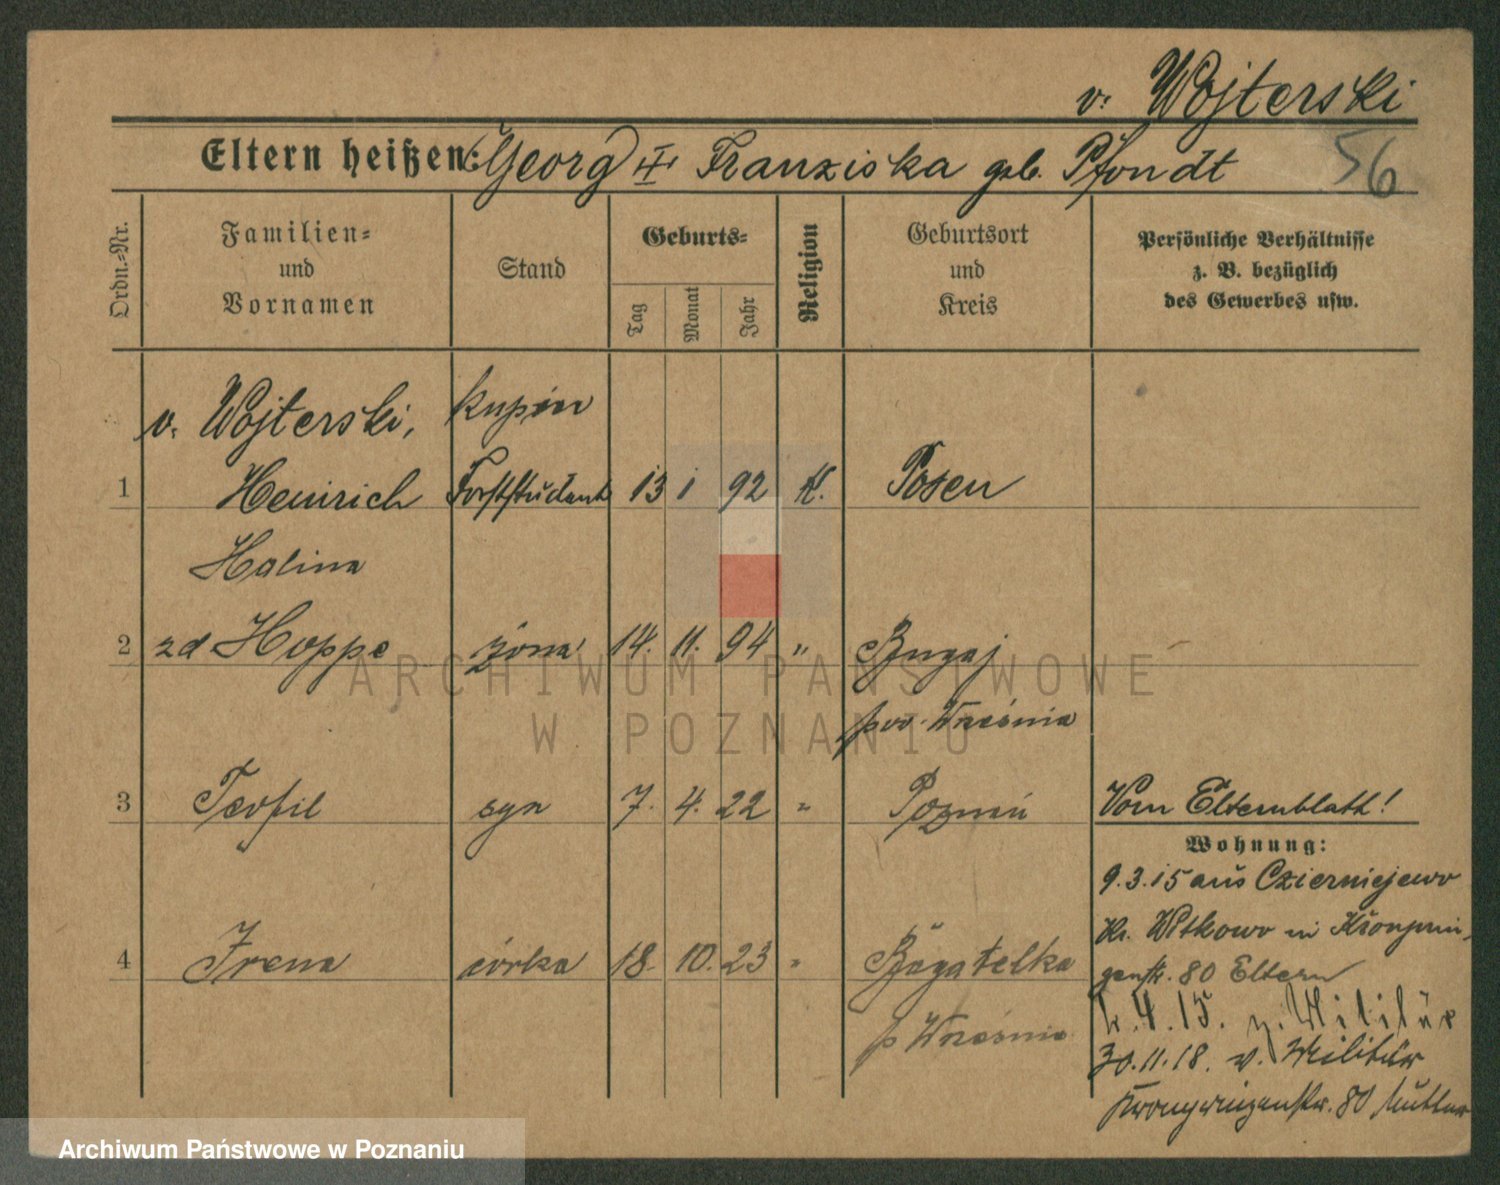 v. Wojterski
Eltern heißen: Georg II Franziska geb. Pfondt
56
Ordn.-Nr.
Familien-
und
Vornamen
Stand
Geburts-
Tag
Monat
Jahr
Religion
Geburtsort
und
Kreis
Persönliche Verhältnisse
z. B. bezüglich
des Gewerbes usw.
v. Wojterski, kupiec
1 Heinrich Forststudent 13 1 92 K. Posen
Halina
2 zd Hoppe żona 14. 11. 94 " Bugaj
pow. Września
3 Teofil syn 7. 4. 22 " Poznań Vom Elternblatt!
Wohnung:
9.3.15 aus Czierniejewo
Kr. Witkowo in Kronprin-
4 Irena córka 18. 10. 23 " Bagatelka zenstr. 80 Eltern
p Września
4.15. z. Militär
30.11.18. v. Militär
Kronprinzenstr. 80 Mutter
ARCHIWUM PAŃSTWOWE
W POZNANIU
Archiwum Państwowe w Poznaniu